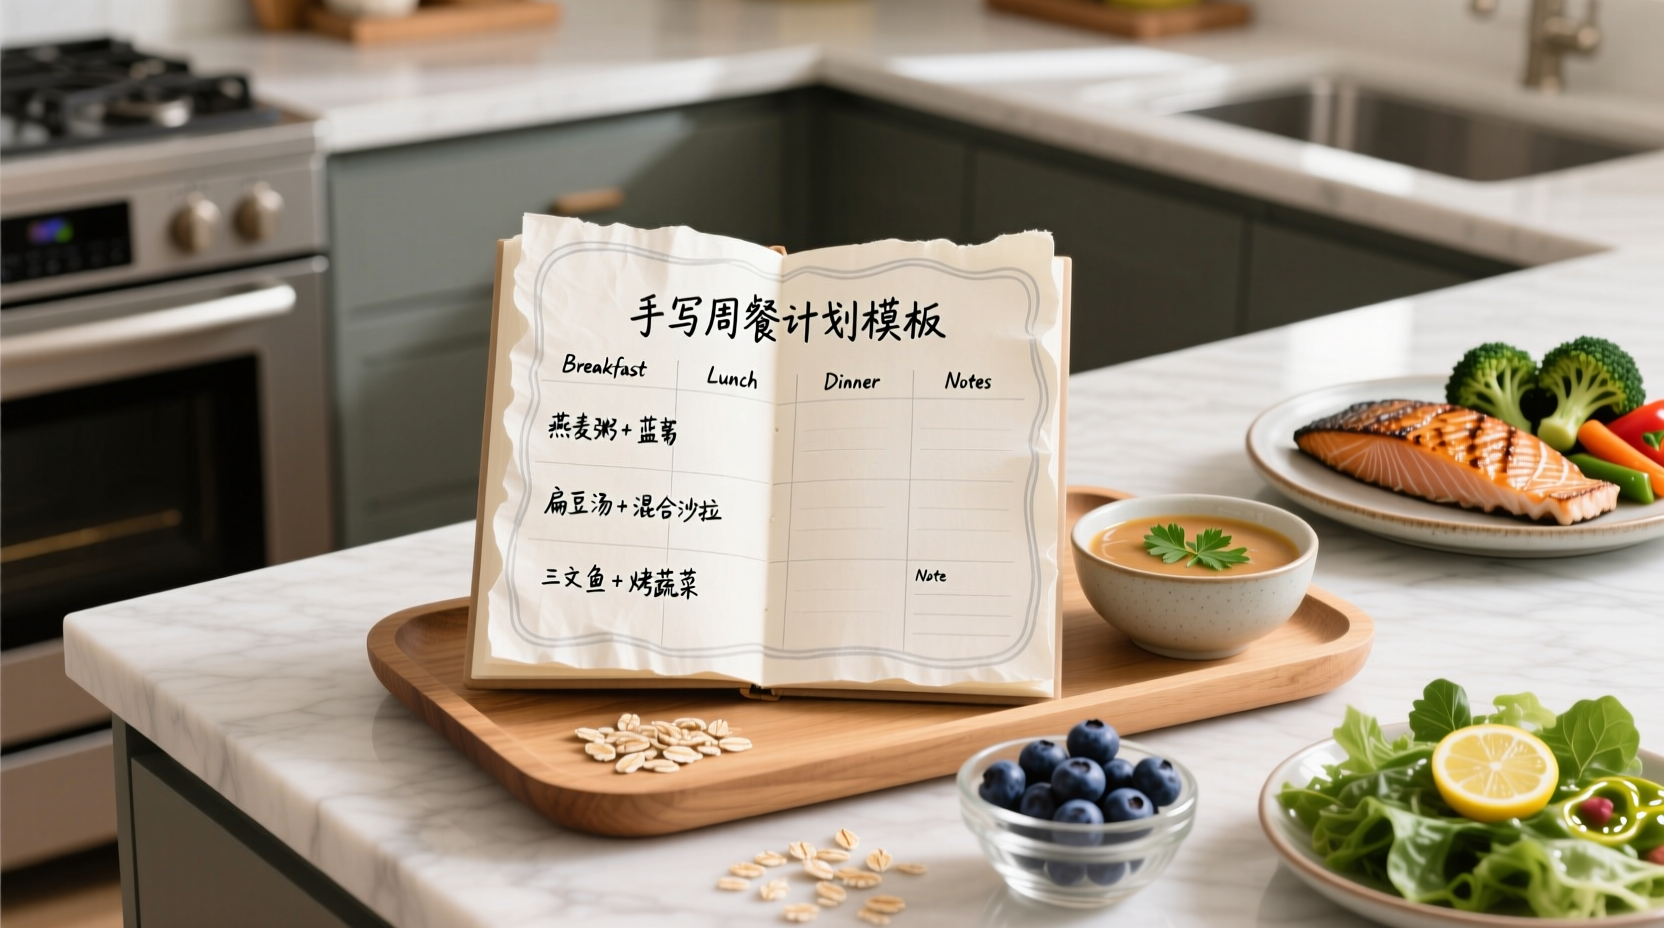 手写周餐计划模板
Breakfast Lunch Dinner Notes
燕麦粥+蓝莓
扁豆汤+混合沙拉
三文鱼+烤蔬菜
Note